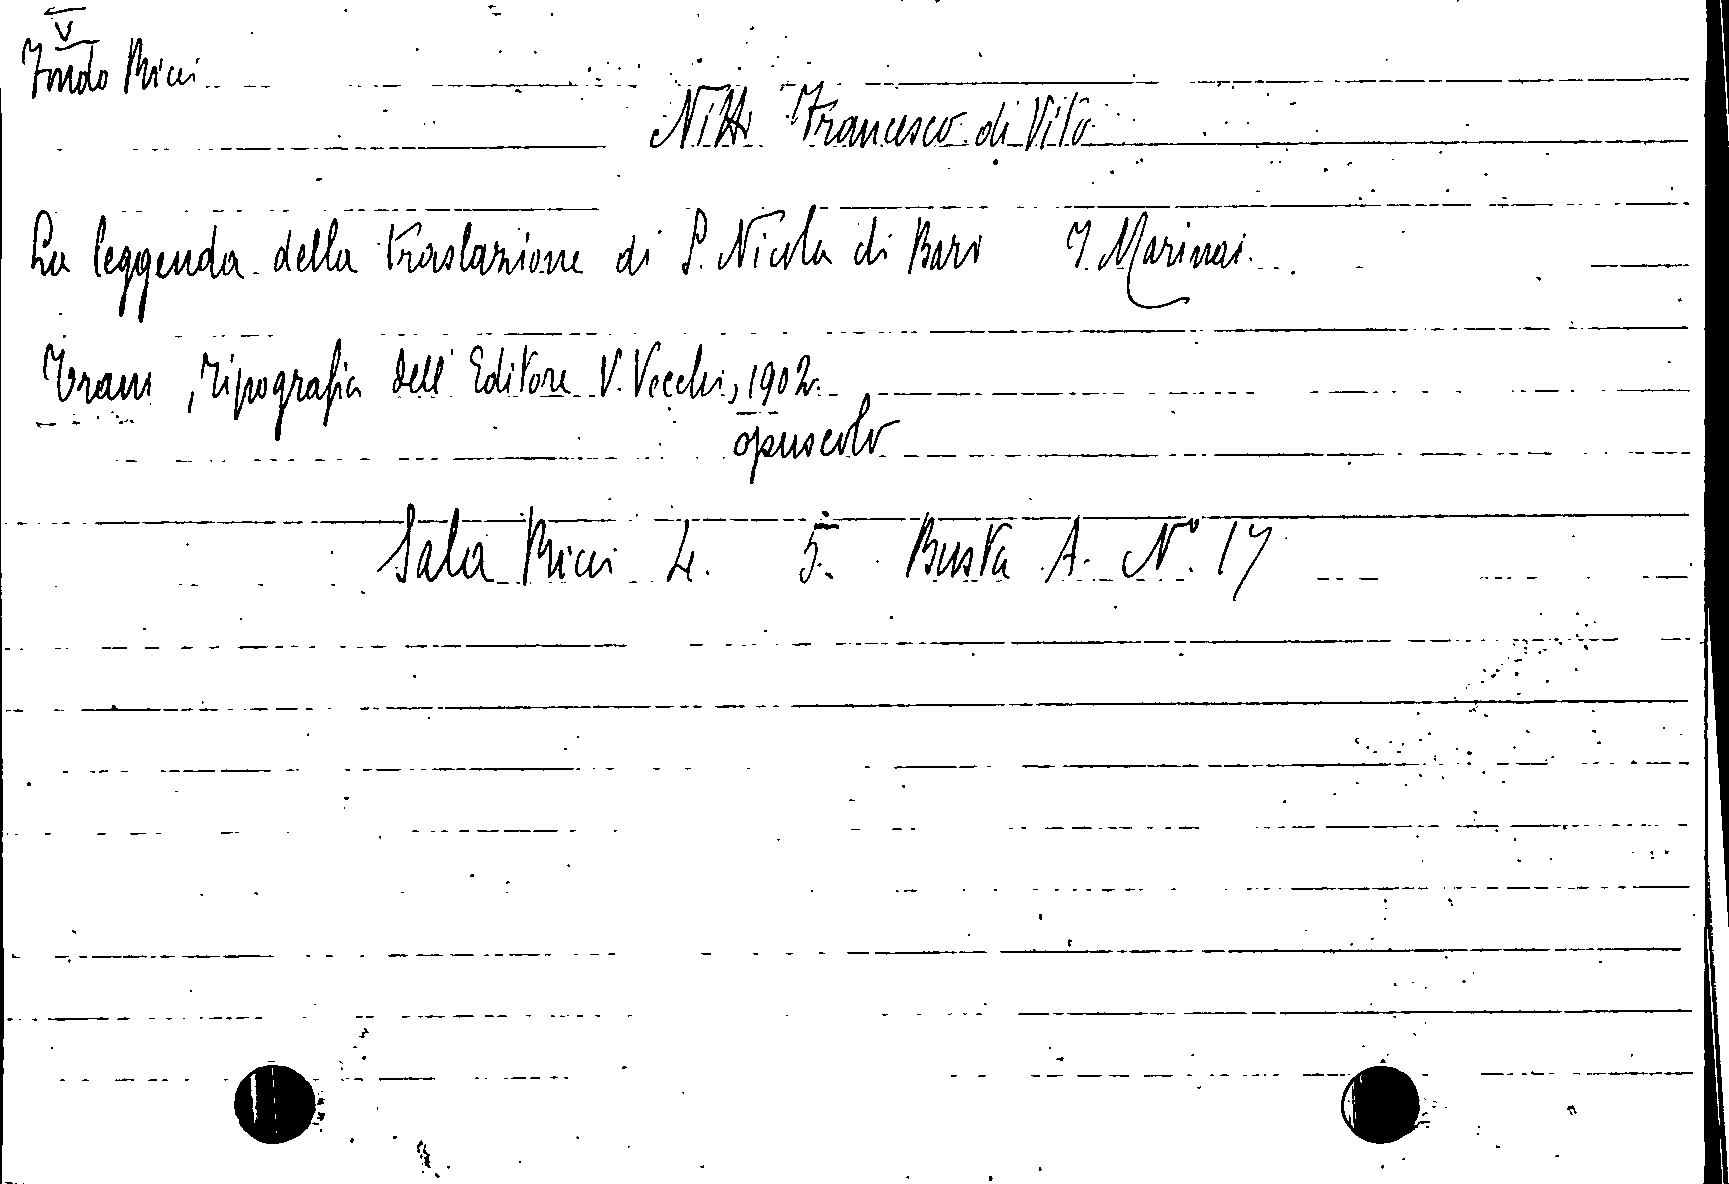 V
Fondo Ricci
Nitti Francesco di Vito
La leggenda della traslazione di S. Nicola di Bari I. Marinai.
Trani, Tipografia dell'Editore V. Vecchi, 1902.
opuscolo
Sala Ricci 4. 5. Busta A. N° 17